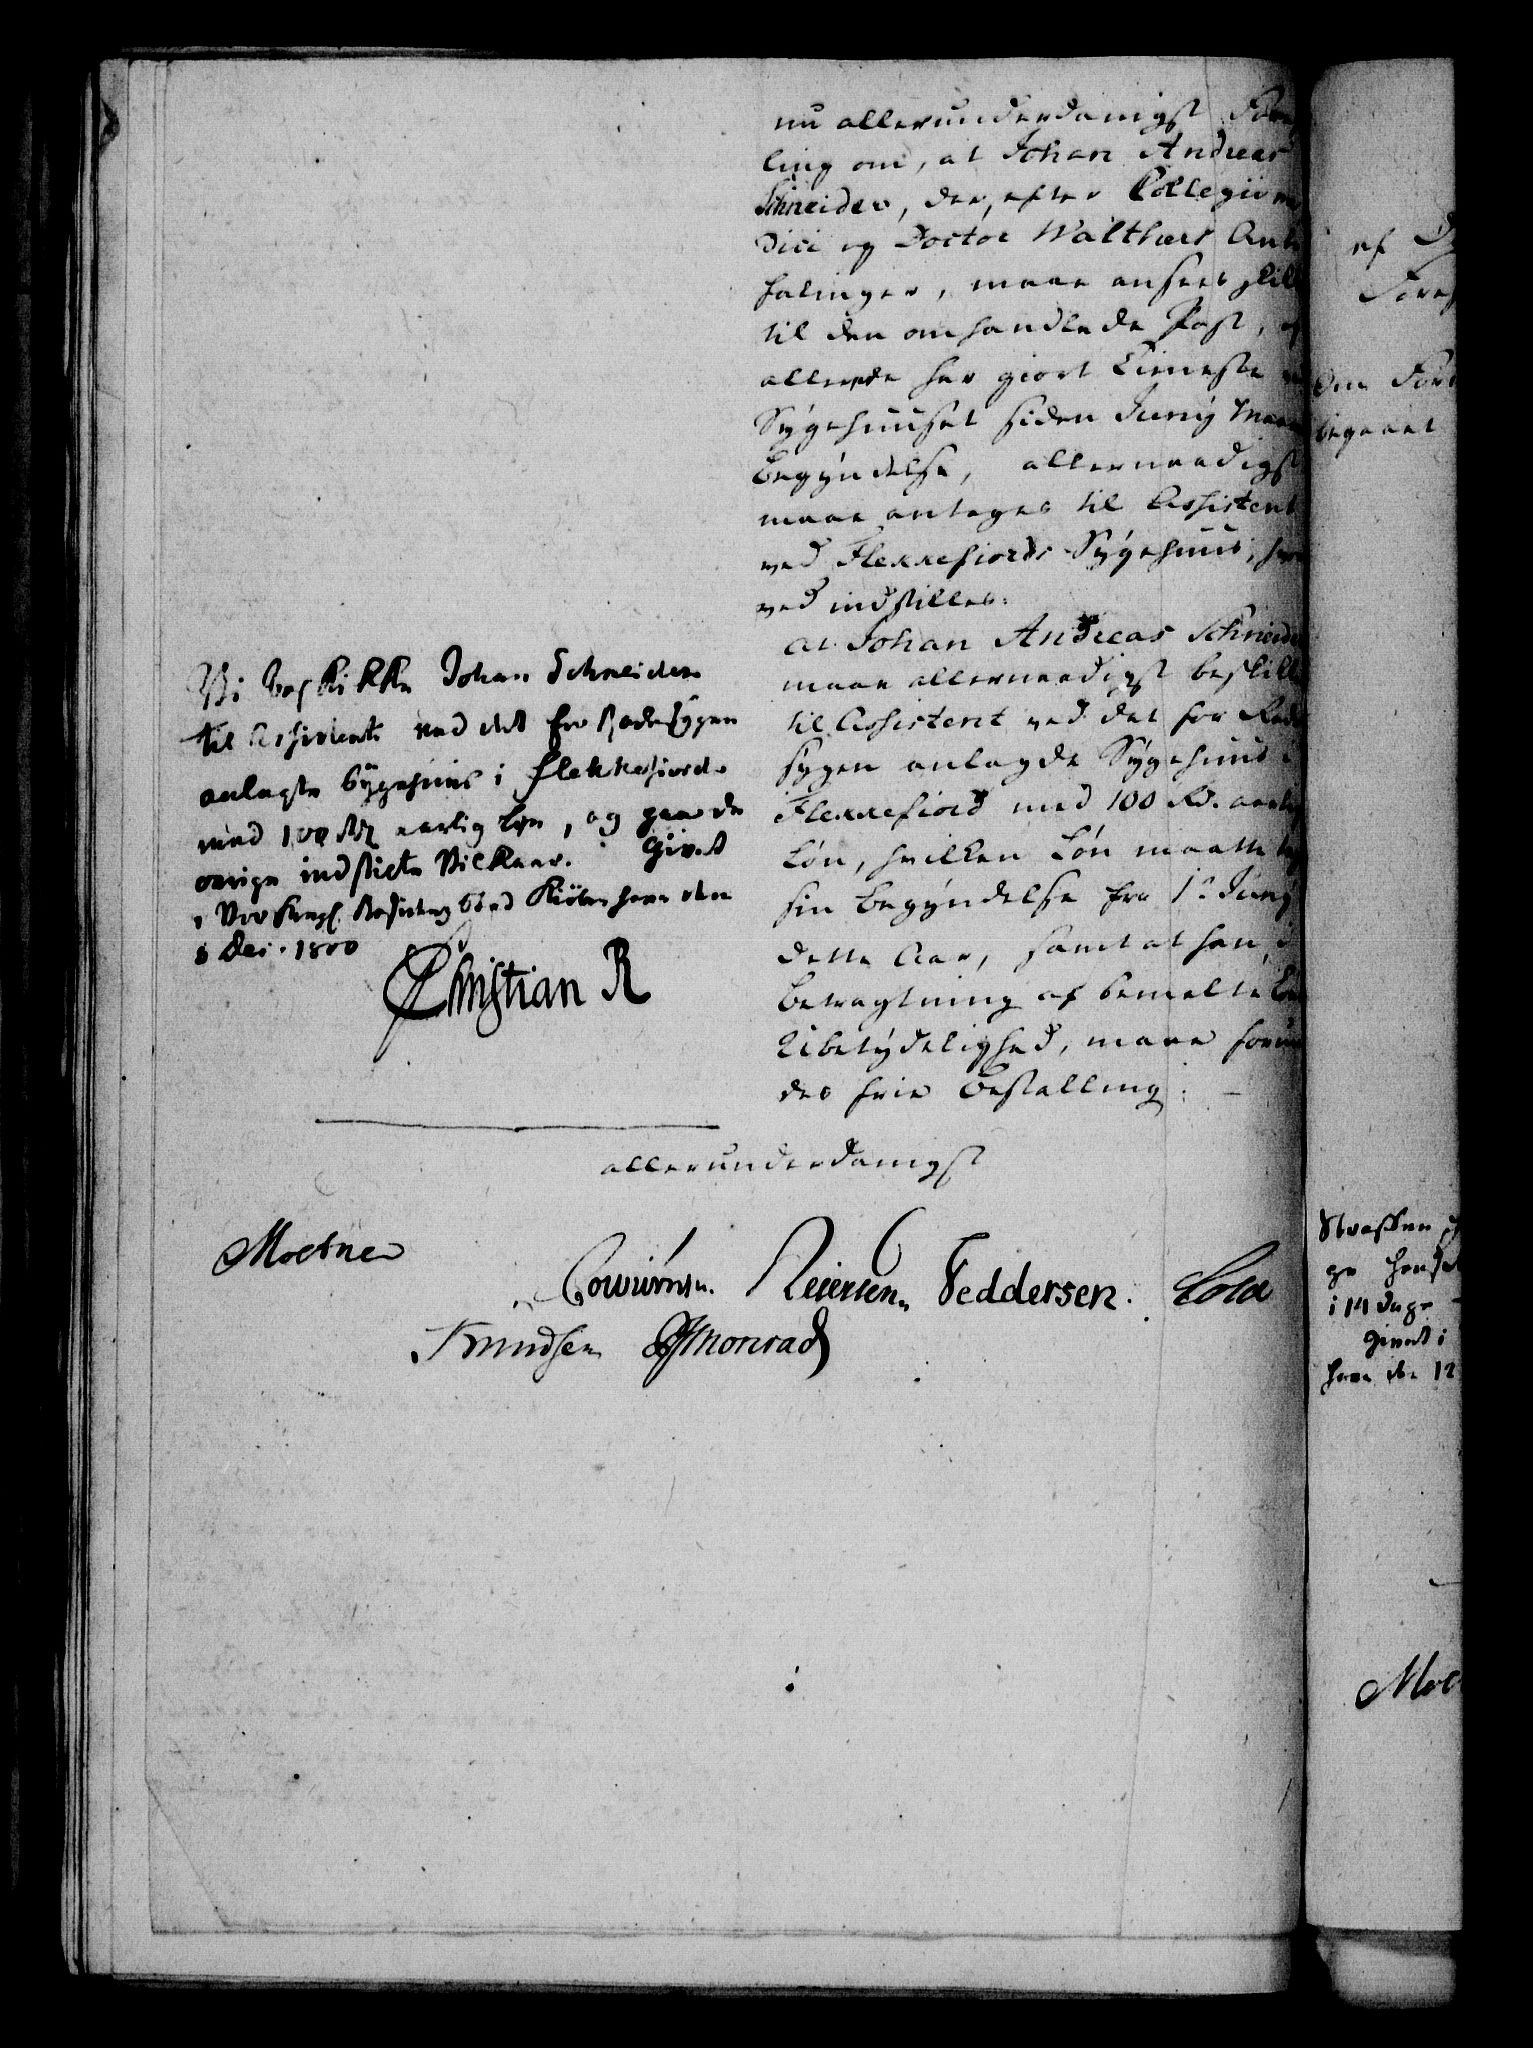 nu allerunderdanigst Fore
ling om, at Johan Andreas
Schneider, der, efter Collegii me
dici og Doctor Walthers Anbe
falinger, maae ansees skik
til den omhandlede Post, og
allerede har giort Tieneste ved
Sygehuuset siden Junÿ Maan
Begÿndelse, allernaadigst
maae antages til Assistent
ved Flekkefiords Sÿgehuus, hvor
ved indstilles:
at Johan Andreas Schneide
maae allernaadigst beskikk
til Assistent ved det for Rade
sygen anlagde Sÿgehuus i
Flekkefiord med 100 Rd. aarlig
Løn, hvilken Løn maatte tag
sin Begÿndelse fra 1ᵒ Junÿ
dette Aar, samt at han, i
Betragtning af bemelte Løn
Ubetÿdelighed, maae forun
des frie Bestalling: –
Vi beskikke Johan Schneider
til Assistent ved det for Radesÿgen
anlagte Sÿgehuus i Flekkefiord
med 100 Rdl. aarlig Løn, og paa de
øvrige indstilte Vilkaar. Givet
i Vor Kongl. Residentz Stad Kiøbenhavn den
Dec. 1800
Christian R
allerunderdanigst
Moesner
Reiersen. Feddersen. Cold
Knudsen Monrad
af
Fores
den For
begieret
i 14 Dage
Givet i
havn den 12
Moe